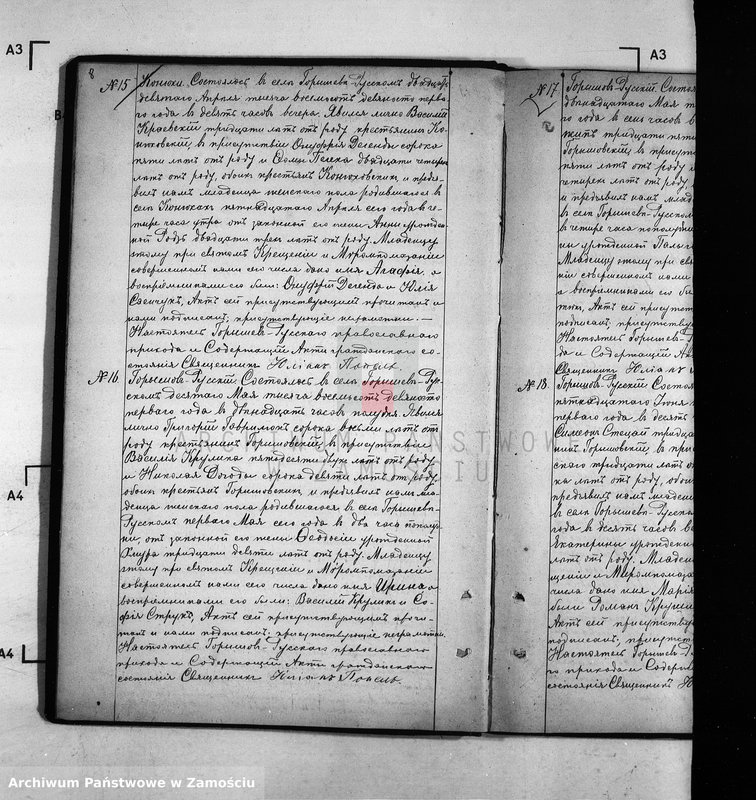 A3
A3
8
№ 15
Конюхи. Состоялось въ селѣ Горышевѣ-Русскомъ двадцать
девятаго Апрѣля тысяча восемьсотъ девяносто перва-
го года въ девять часовъ вечера. Явился лично Василій
Краевскій тридцати лѣтъ отъ роду крестьянинъ Ко-
нюховскій, въ присутствіи Онуфрія Делегенды сорока
пяти лѣтъ отъ роду и двадцати четырехъ
лѣтъ отъ роду, обоихъ крестьянъ Конюховскихъ, и предъя-
вилъ намъ младенца женскаго пола родившагося въ
селѣ Конюхахъ пятнадцатаго Апрѣля сего года въ че-
тыре часа утра отъ законной его жены Анны урожден-
ной двадцати трехъ лѣтъ отъ роду. Младенцу
этому при святомъ Крещеніи и Мѵропомазаніи
совершенномъ нами сего числа дано имя Агафія, а
воспріемниками его были: Онуфрій и Юлія
Актъ сей присутствующимъ прочитанъ и
нами подписанъ, присутствующіе неграмотны. —
Настоятель Горышев-Русскаго православнаго
прихода и Содержащій Акты гражданскаго со-
стоянія Священникъ Юліанъ
№ 16
Горышовъ-Русскій. Состоялось въ селѣ Горышевѣ-Рус-
скомъ десятаго Мая тысяча восемьсотъ девяносто
перваго года въ двѣнадцать часовъ полудня. Явился
лично Григорій Гаврилюкъ сорока восьми лѣтъ отъ
роду крестьянинъ Горышовскій, въ присутствіи
Василія Крулика пятидесяти двухъ лѣтъ отъ роду
и Николая сорока девяти лѣтъ отъ роду,
обоихъ крестьянъ Горышовскихъ, и предъявилъ намъ мла-
денца женскаго пола родившагося въ селѣ Горышевѣ-
Русскомъ перваго Мая сего года въ два часа полу-
отъ законной его жены Ѳеодосіи урожденной
тридцати девяти лѣтъ отъ роду. Младенцу
этому при святомъ Крещеніи и Мѵропомазаніи
совершенномъ нами сего числа дано имя Ирина, а
воспріемниками его были: Василій Крулик и Со-
фія Струкъ, Актъ сей присутствующимъ прочи-
танъ и нами подписанъ, присутствующіе неграмотны.
Настоятель Горышов-Русскаго православнаго
прихода и Содержащій Акты гражданскаго
состоянія Священникъ Юліанъ
№ 17
Горышовъ-Русскій. Состоя
двѣнадцатаго Мая т
го года въ семь часовъ
тридцати пяти
Горышовскій, въ присут
пяти лѣтъ отъ роду и
четырехъ лѣтъ отъ роду,
и предъявилъ намъ млад
въ селѣ Горышевѣ-Русском
въ четыре часа пополуд
ны урожденной
Младенцу этому при свя
совершенномъ нами
а воспріемниками его бы
Актъ сей присутст
подписанъ, присутствую
Настоятель Горышев-Р
да и Содержащій Ак
Священникъ Юліанъ
№ 18
Горышовъ Русскій Состоя
пятнадцатаго Іюня
перваго года въ десять
Симеонъ тридца
Горышовскій, въ при
скаго тридцати лѣтъ о
ка лѣтъ отъ роду, обоих
предъявилъ намъ младен
въ селѣ Горышевѣ-Русск
года въ десять часовъ ве
Екатерины урожденн
лѣтъ отъ роду. Младен
щеніи и Мѵропомаза
числа дано имя Марія
были Романъ
Актъ сей присутству
подписанъ, присутст
Настоятель Горышев-Р
го прихода и Содерж
состоянія Священникъ Ю
A4
A4
ARCHIWUM PAŃSTWOWE
W ZAMOŚCIU
Archiwum Państwowe w Zamościu